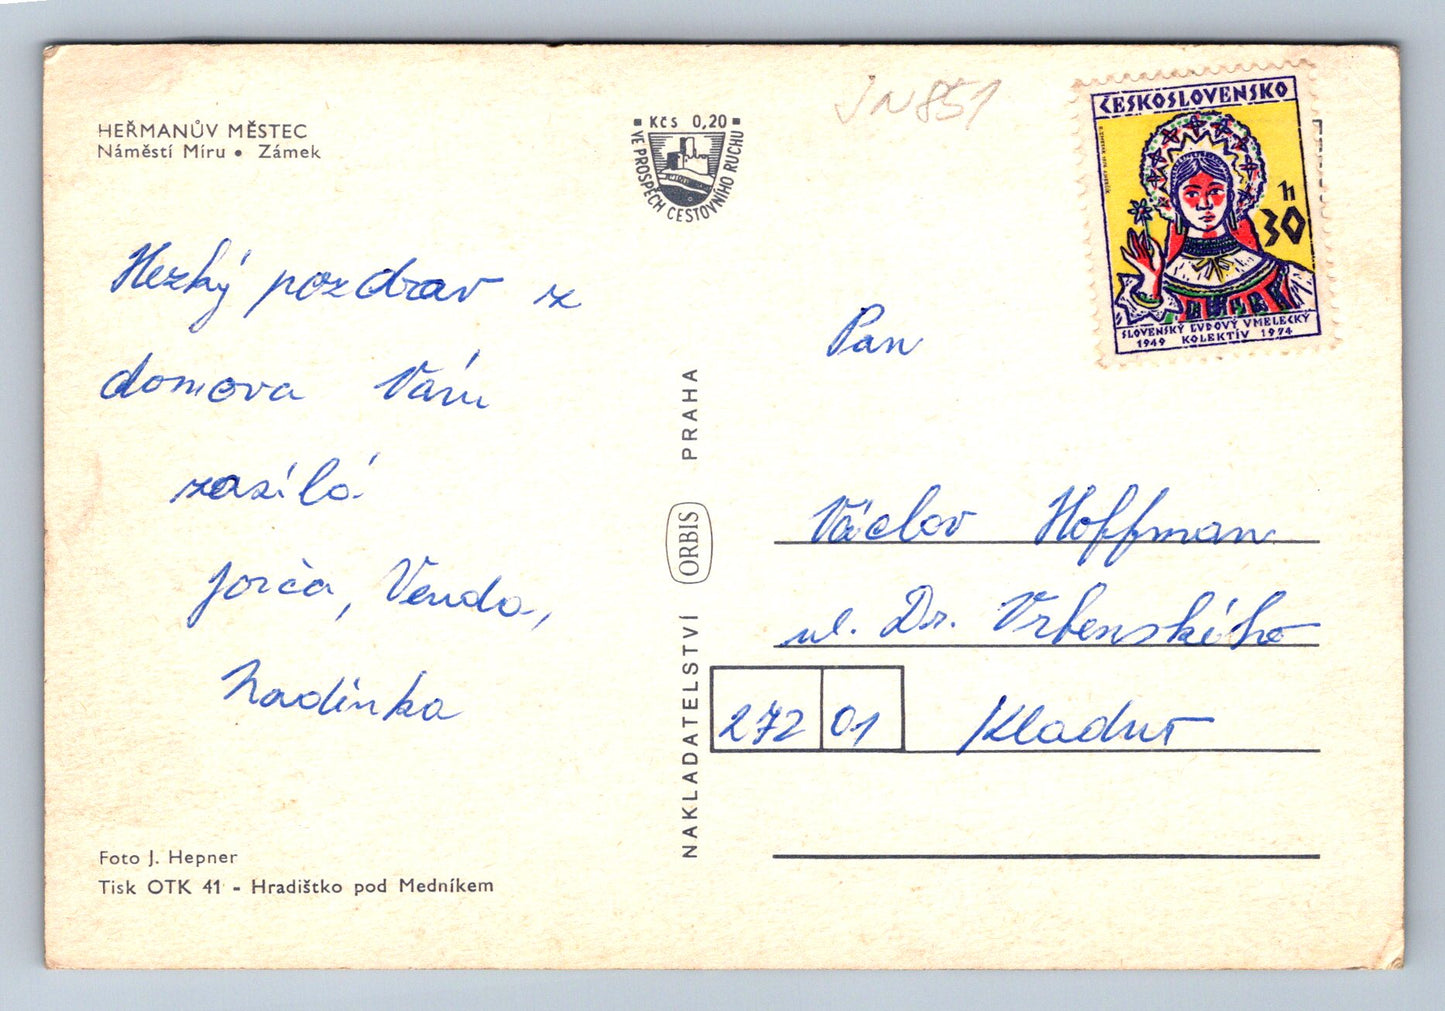 HEŘMANŮV MĚSTEC
Náměstí Míru • Zámek
Hezký pozdrav z
domova Vám
zasílá
Jorča, Venda,
Nadinka
Foto J. Hepner
Tisk OTK 41 - Hradištko pod Medníkem
Kčs 0,20
VE PROSPĚCH CESTOVNÍHO RUCHU
NAKLADATELSTVÍ ORBIS PRAHA
JN851
ČESKOSLOVENSKO
30 h
SLOVENSKÝ ĽUDOVÝ UMELECKÝ
1949 KOLEKTÍV 1974
Pan
Václav Hoffman
ul. Dr. Vrbenského
272 01 Kladno